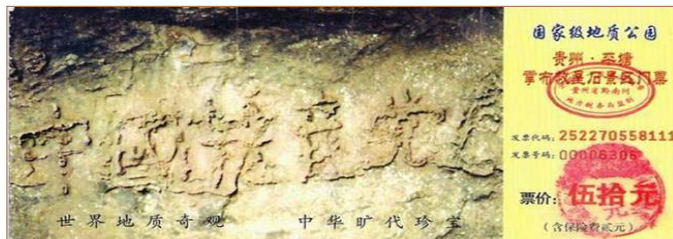 中國共產党亡
世界地质奇观 中华旷代珍宝
国家级地质公园
贵州·平塘
掌布藏字石景区门票
贵州省黔南州
地方税务局监制
发票代码：252270558111
发票号码：00006306
票价：伍拾元
（含保险费贰元）